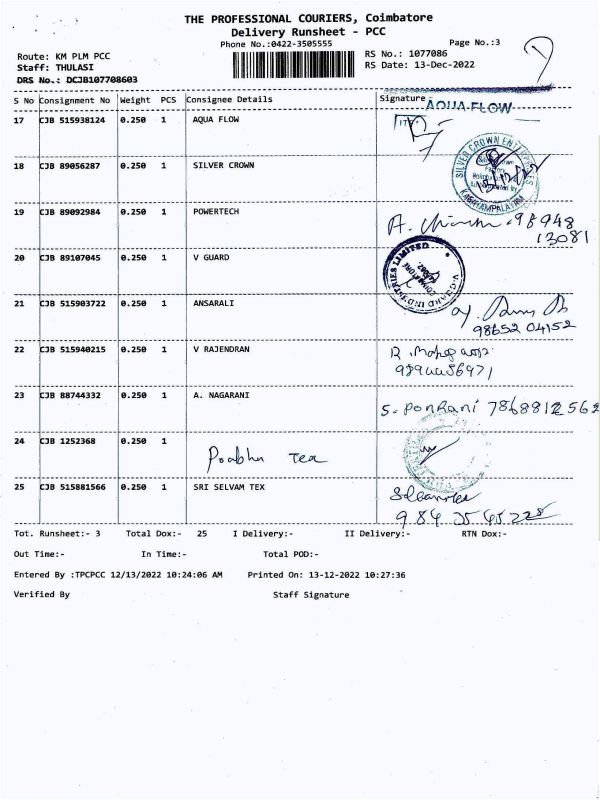 THE PROFESSIONAL COURIERS, Coimbatore
Delivery Runsheet - PCC
Phone No.:0422-3505555
Page No.:3
Route: KM PLM PCC
RS No.: 1077086
Staff: THULASI
RS Date: 13-Dec-2022
DRS No.: DCJB107708603
S No Consignment No Weight PCS Consignee Details Signature
AQUA FLOW
17 CJB 515938124 0.250 1 AQUA FLOW
18 CJB 89056287 0.250 1 SILVER CROWN
SILVER CROWN ENTERPRISES
19 CJB 89092984 0.250 1 POWERTECH
A. 98948
13081
20 CJB 89107045 0.250 1 V GUARD
V-GUARD INDUSTRIES LIMITED
21 CJB 515903722 0.250 1 ANSARALI
98652 04152
22 CJB 515940215 0.250 1 V RAJENDRAN
23 CJB 88744332 0.250 1 A. NAGARANI
S. PonRani 7868812562
24 CJB 1252368 0.250 1
Prabhu Tex
25 CJB 515881566 0.250 1 SRI SELVAM TEX
Tot. Runsheet:- 3 Total Dox:- 25 I Delivery:- II Delivery:- RTN Dox:-
Out Time:- In Time:- Total POD:-
Entered By :TPCPCC 12/13/2022 10:24:06 AM Printed On: 13-12-2022 10:27:36
Verified By Staff Signature